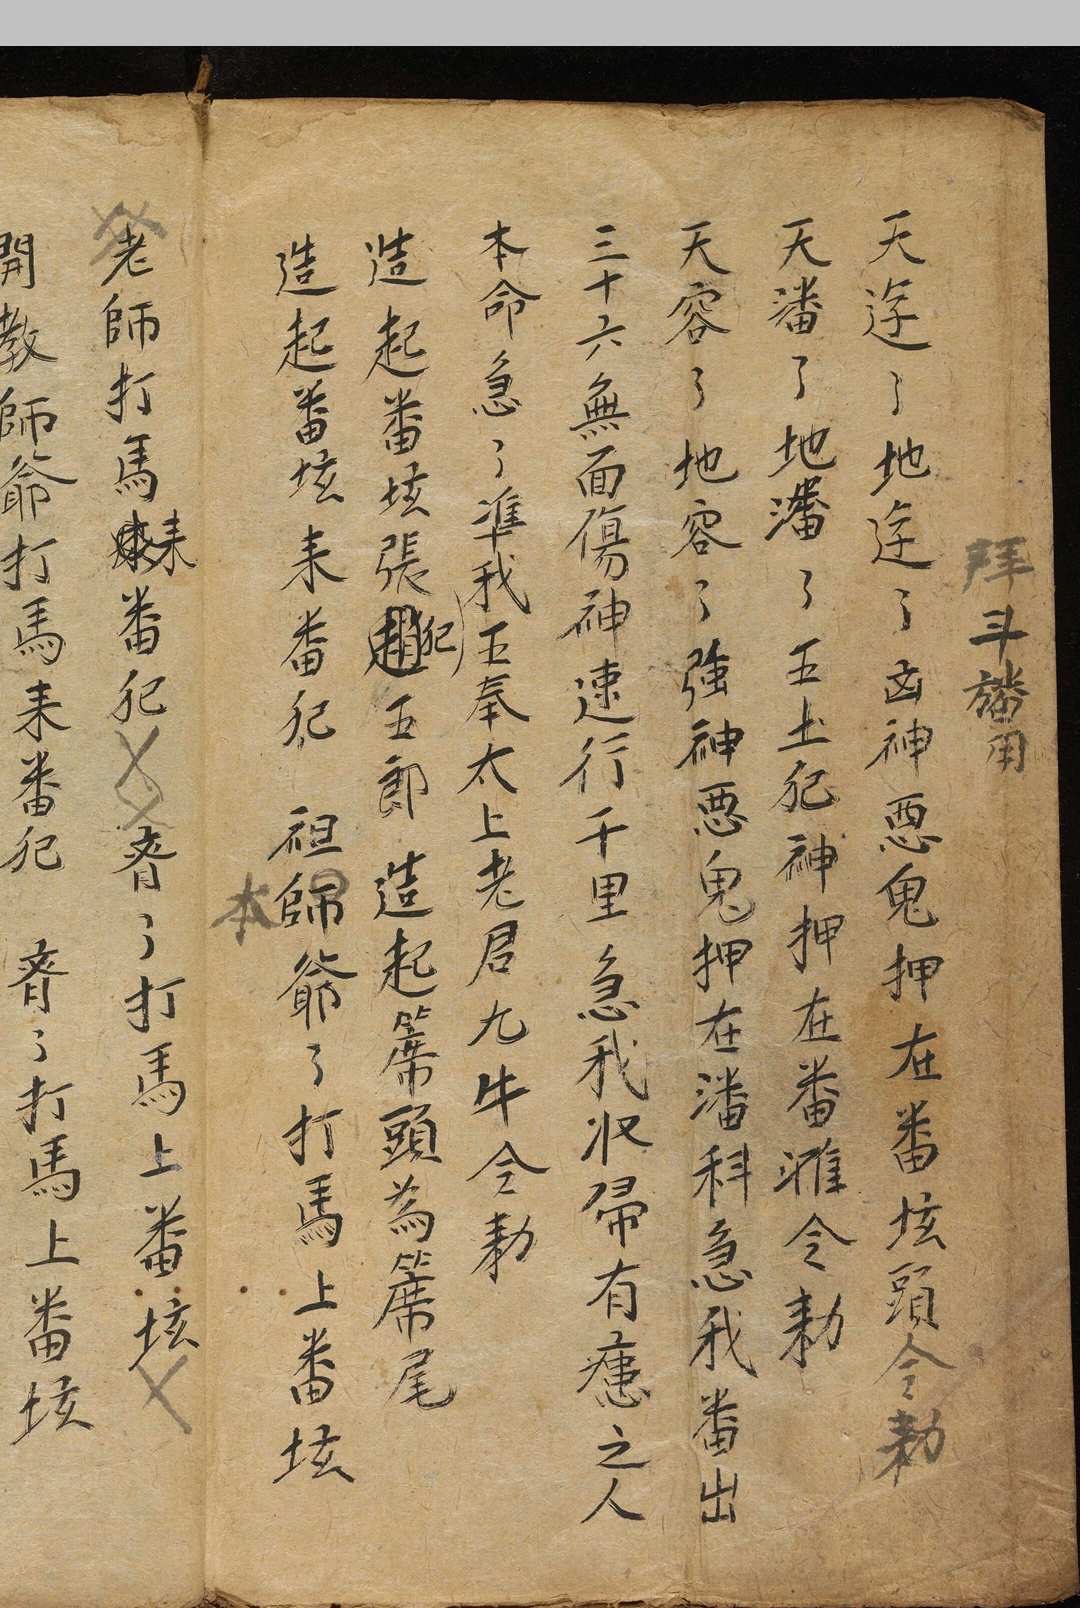 拜斗旛用
天迮了地迮了凶神惡鬼押在番垓頭令勅
天潘了地潘了五土犯神押在番潍令勅
天容了地容了強神惡鬼押在潘科急我番出
三十六無面傷神速行千里急我収帰有瘧之人
本命急了準我五奉太上老君九牛令勅
造起番垓張犯五郎 造起蓆頭為蓆尾
造起番垓耒番犯 祖師爺了打馬上番垓
本
老師打馬耒番犯 齊了打馬上番垓
開教師爺打馬耒番犯 齊了打馬上番垓